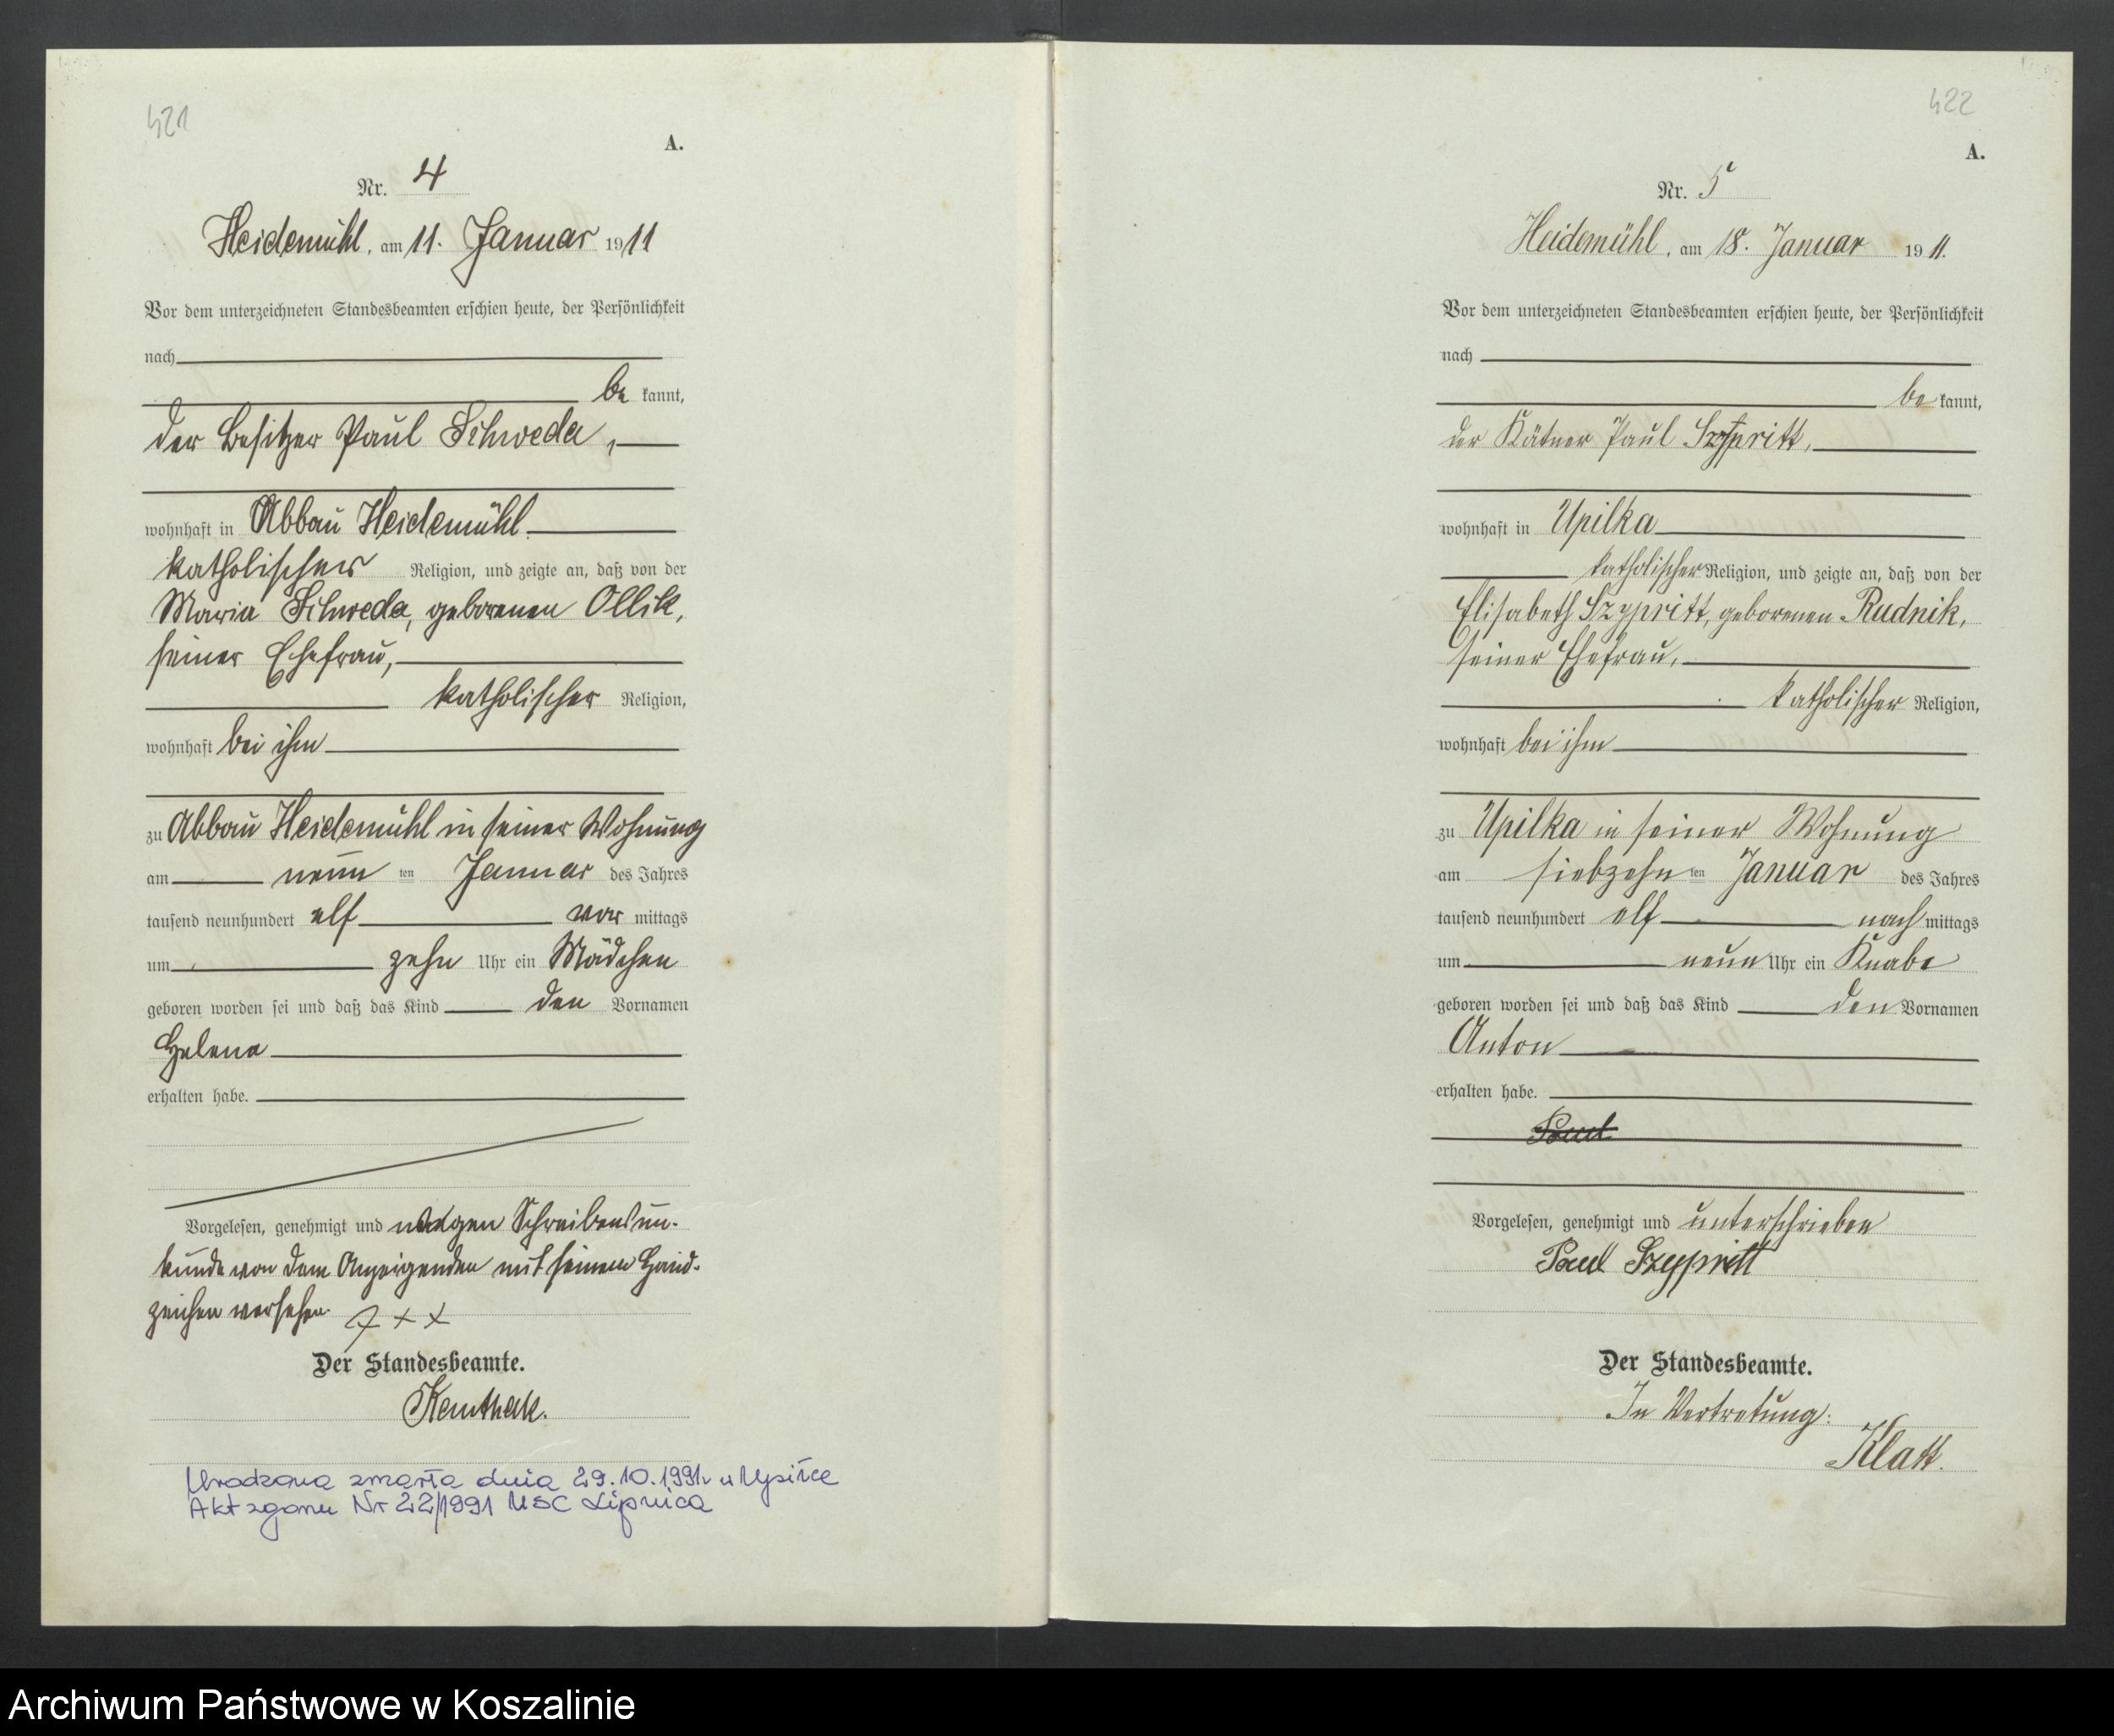 421
A.
Nr. 4
Heidemühl, am 11. Januar 1911
Vor dem unterzeichneten Standesbeamten erschien heute, der Persönlichkeit
nach
be kannt,
der Besitzer Paul Schweda,
wohnhaft in Abbau Heidemühl
katholischer Religion, und zeigte an, daß von der
Maria Schweda, geborenen Ollik,
seiner Ehefrau,
katholischer Religion,
wohnhaft bei ihm
zu Abbau Heidemühl in seiner Wohnung
am neun ten Januar des Jahres
tausend neunhundert elf vor mittags
um zehn Uhr ein Mädchen
geboren worden sei und daß das Kind den Vornamen
Helena
erhalten habe.
Vorgelesen, genehmigt und wegen Schreibensun-
kunde von dem Anzeigenden mit seinem Hand-
zeichen versehen. + + +
Der Standesbeamte.
Kemthak.
Urodzona zmarła dnia 29.10.1991r w Upiłce
Akt zgonu Nr 22/1991 USC Lipnica
422
A.
Nr. 5
Heidemühl, am 18. Januar 1911.
Vor dem unterzeichneten Standesbeamten erschien heute, der Persönlichkeit
nach
be kannt,
der Kätner Paul Szypritt,
wohnhaft in Upilka
katholischer Religion, und zeigte an, daß von der
Elisabeth Szypritt, geborenen Rudnik,
seiner Ehefrau,
katholischer Religion,
wohnhaft bei ihm
zu Upilka in seiner Wohnung
am siebzehn ten Januar des Jahres
tausend neunhundert elf nach mittags
um neun Uhr ein Knabe
geboren worden sei und daß das Kind den Vornamen
Anton
erhalten habe.
Paul
Vorgelesen, genehmigt und unterschrieben
Paul Szypritt
Der Standesbeamte.
In Vertretung:
Klatt.
Archiwum Państwowe w Koszalinie